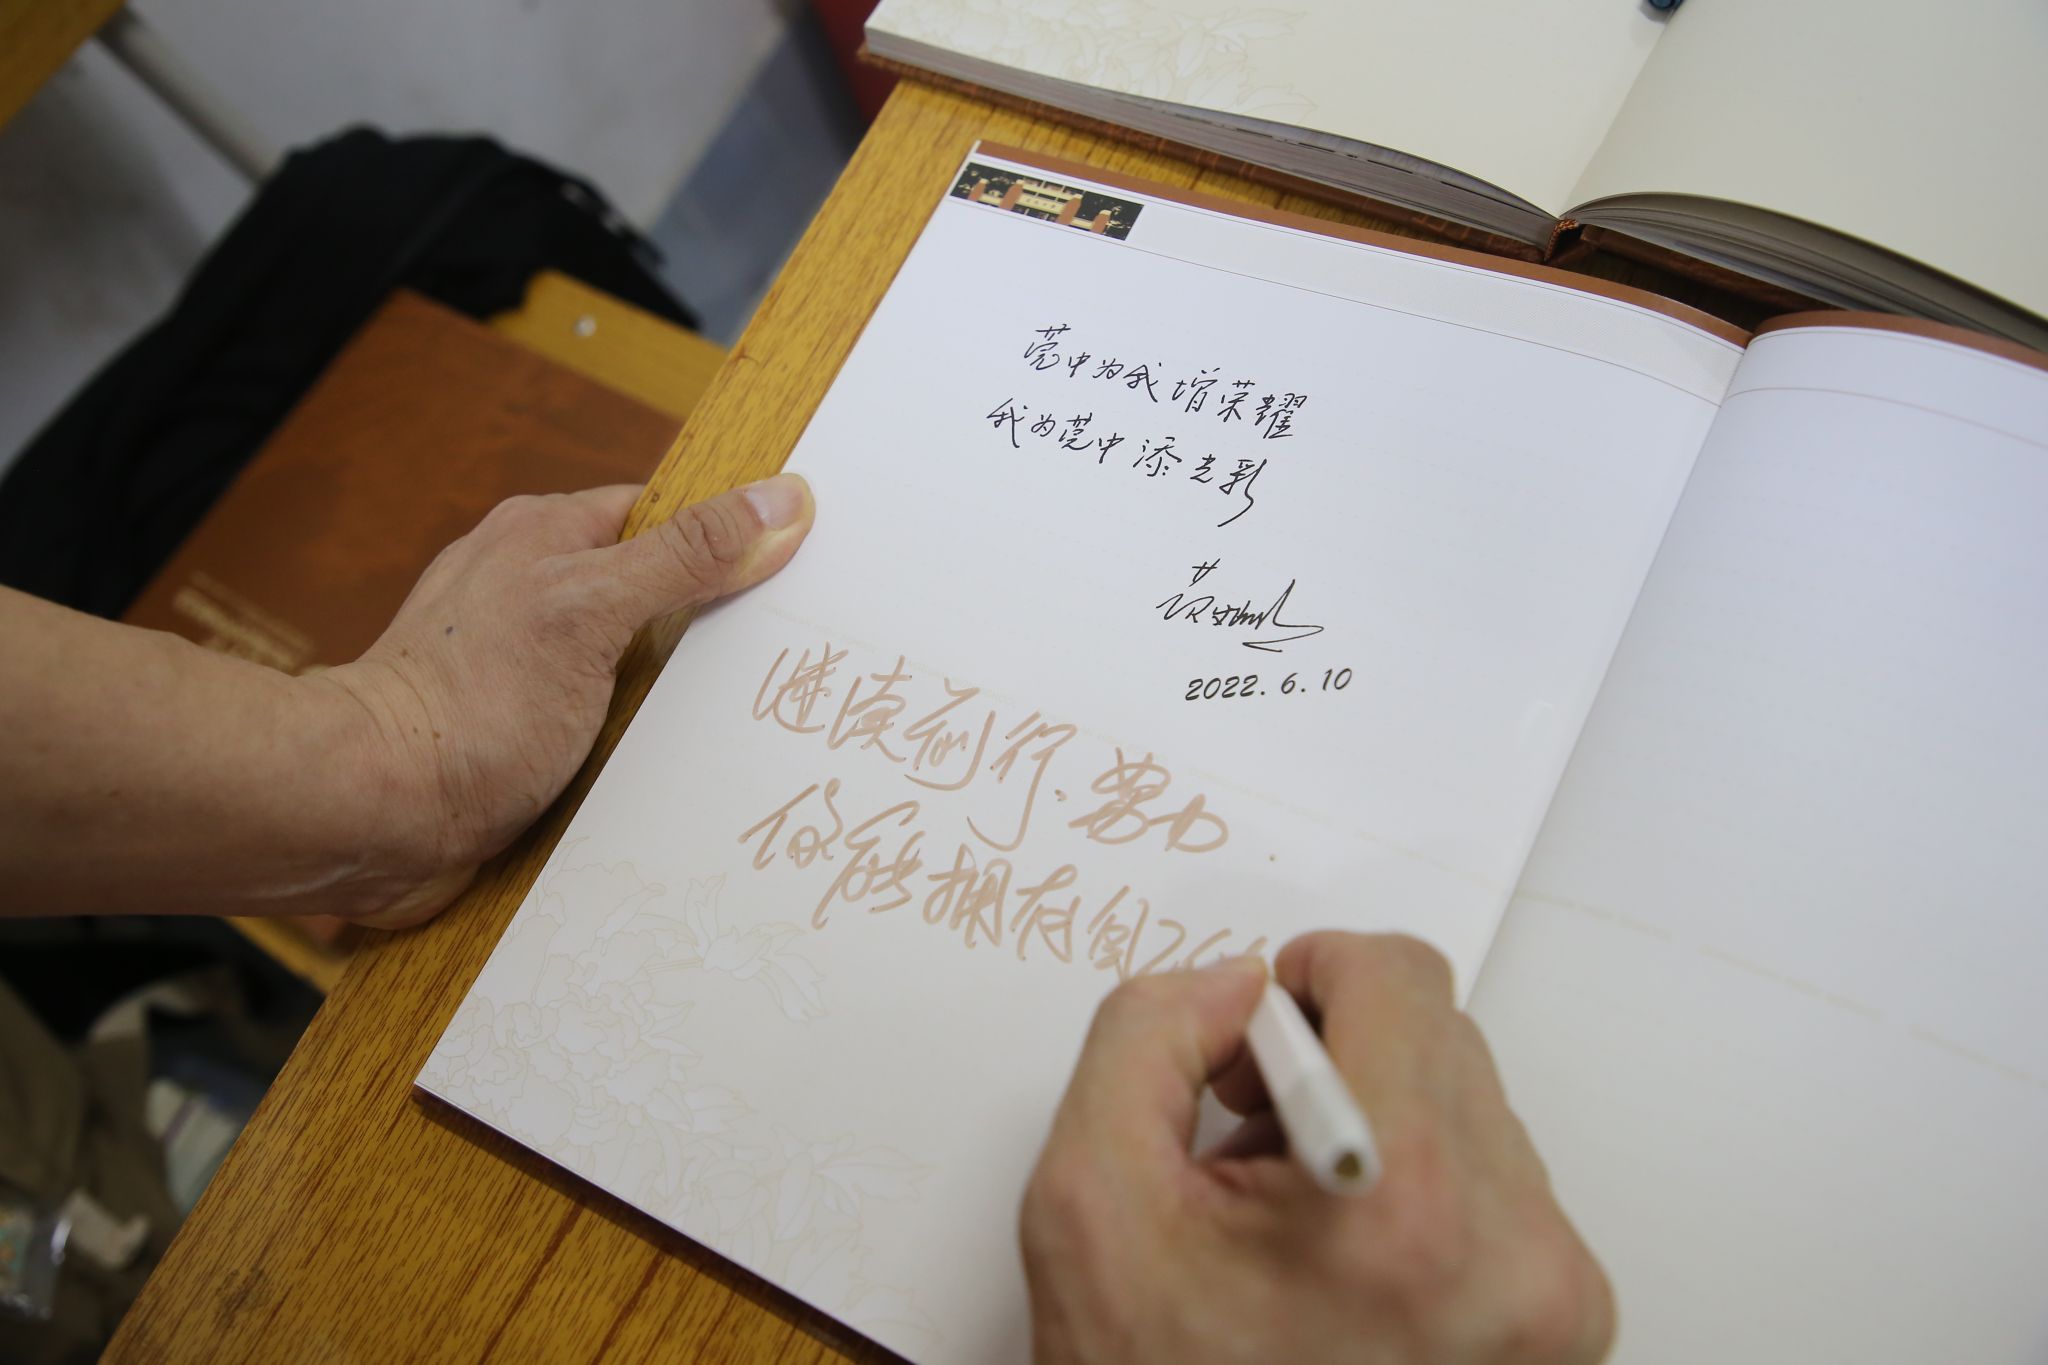 莞中为我增荣耀
我为莞中添光彩
2022.6.10
继续前行、努力
你能拥有自己的